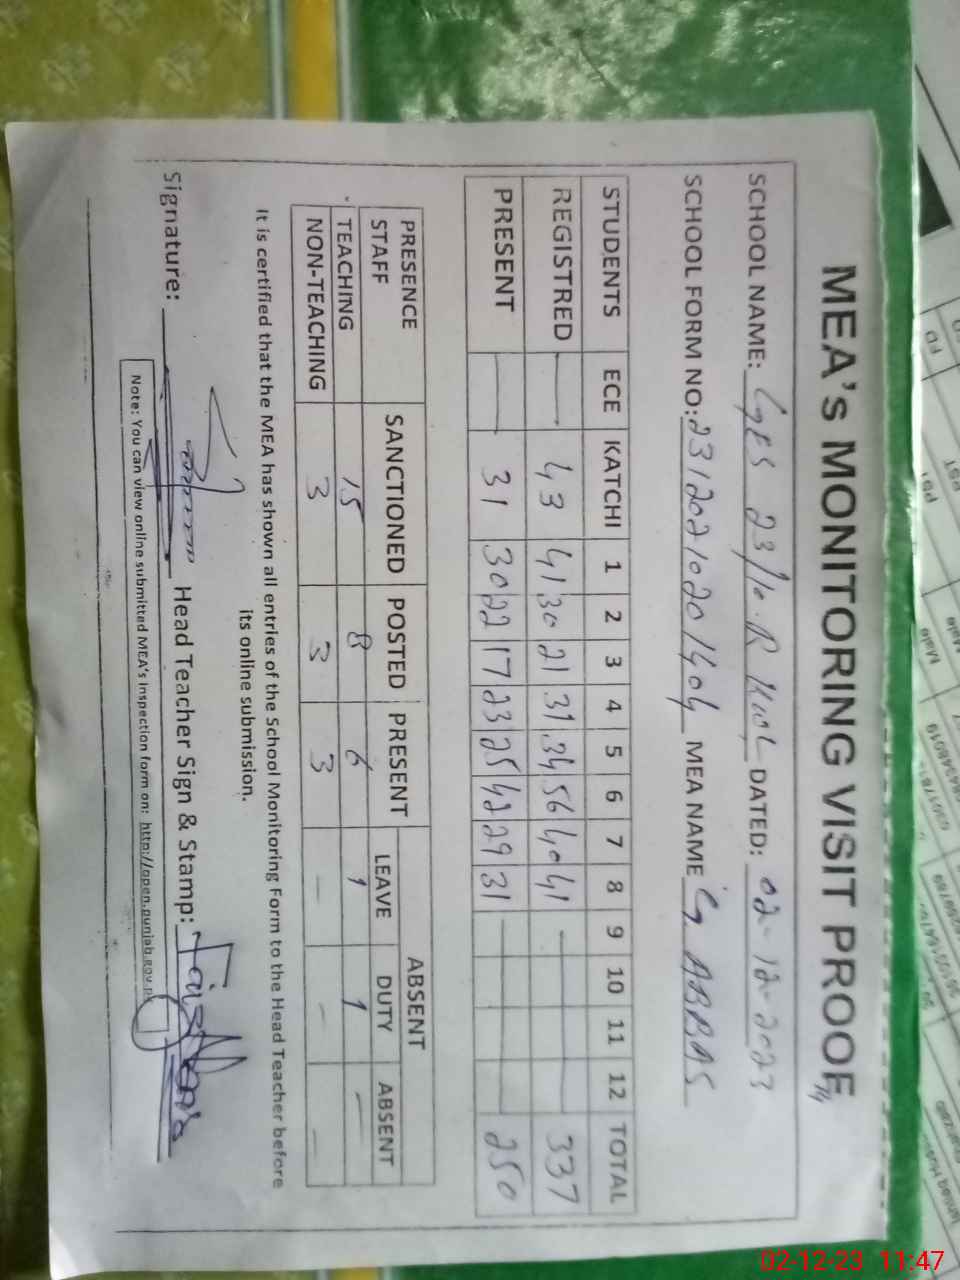 MEA's MONITORING VISIT PROOF
SCHOOL NAME: GES 23/10.R KWL DATED: 02-12-2023
SCHOOL FORM NO: 23120210201404 MEA NAME G. ABBAS
STUDENTS ECE KATCHI 1 2 3 4 5 6 7 8 9 10 11 12 TOTAL
REGISTRED — 43 41 30 21 31 34 56 40 41 — 337
PRESENT — 31 30 22 17 23 25 42 29 31 — 250
PRESENCE STAFF SANCTIONED POSTED PRESENT ABSENT
LEAVE DUTY ABSENT
TEACHING 15 8 6 1 1 —
NON-TEACHING 3 3 3 — — —
It is certified that the MEA has shown all entries of the School Monitoring Form to the Head Teacher before
its online submission.
Signature: Head Teacher Sign & Stamp:
Note: You can view online submitted MEA's Inspection form on: http://open.punjab.gov.pk
02-12-23 11:47